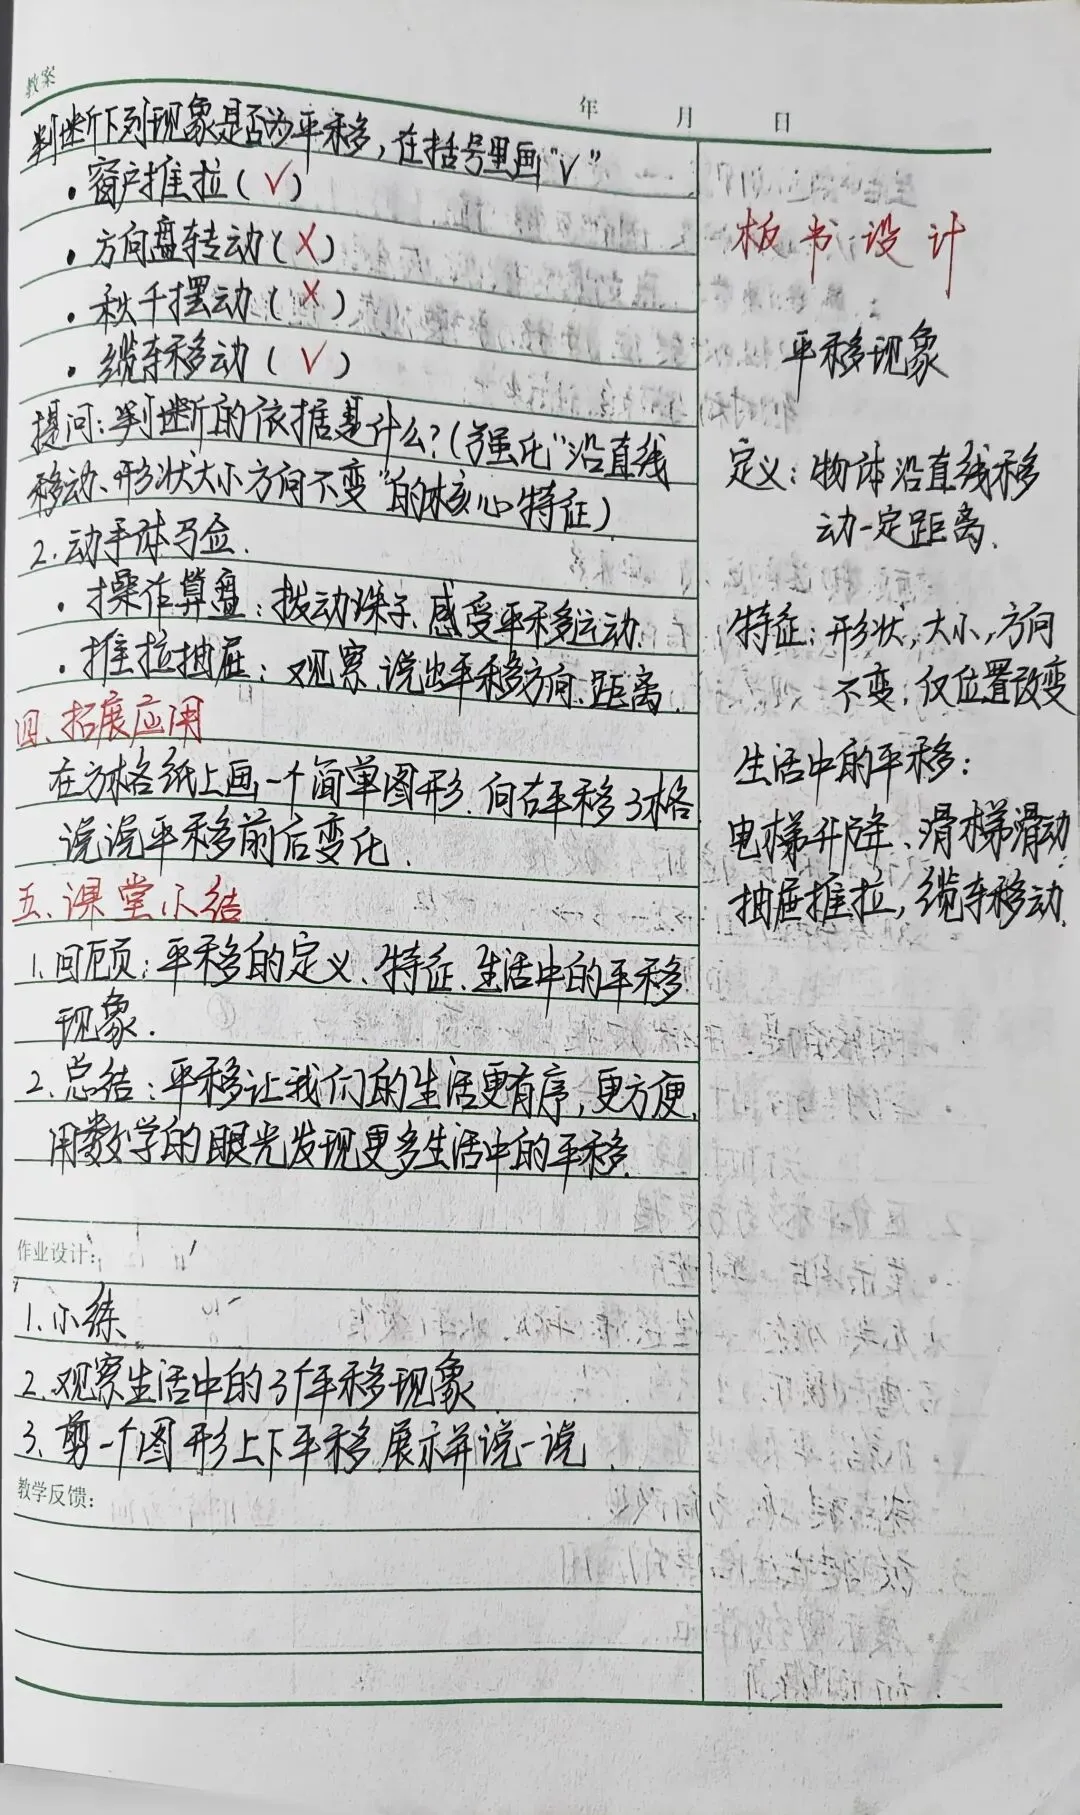 教案
年 月 日
判断下列现象是否为平移,在括号里画"√"
·窗户推拉(√)
·方向盘转动(×)
·秋千摆动(×)
·缆车移动(√)
提问:判断的依据是什么?(强化"沿直线
移动、形状大小方向不变"的核心特征)
2.动手体验.
·操作算盘:拨动珠子.感受平移运动.
·推拉抽屉:观察.说出平移方向.距离.
四、拓展应用
在方格纸上画一个简单图形.向右平移3格.
说说平移前后变化.
五、课堂小结
1.回顾:平移的定义、特征.生活中的平移
现象.
2.总结:平移让我们的生活更有序,更方便.
用数学的眼光发现更多生活中的平移.
作业设计:
1.小练
2.观察生活中的3个平移现象
3.剪一个图形上下平移.展示并说一说
教学反馈:
板书设计
平移现象
定义:物体沿直线移
动一定距离.
特征:形状,大小,方向
不变,仅位置改变
生活中的平移:
电梯升降、滑梯滑动
抽屉推拉,缆车移动.